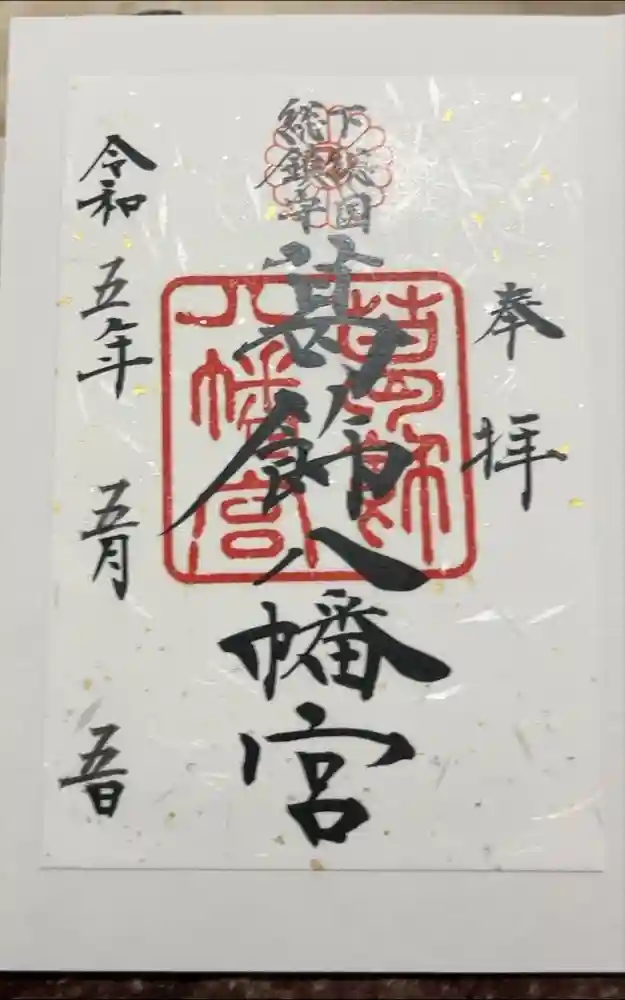 奉拝
下総国
総鎮守
葛飾八幡宮
葛飾
八幡宮
令和五年五月五日